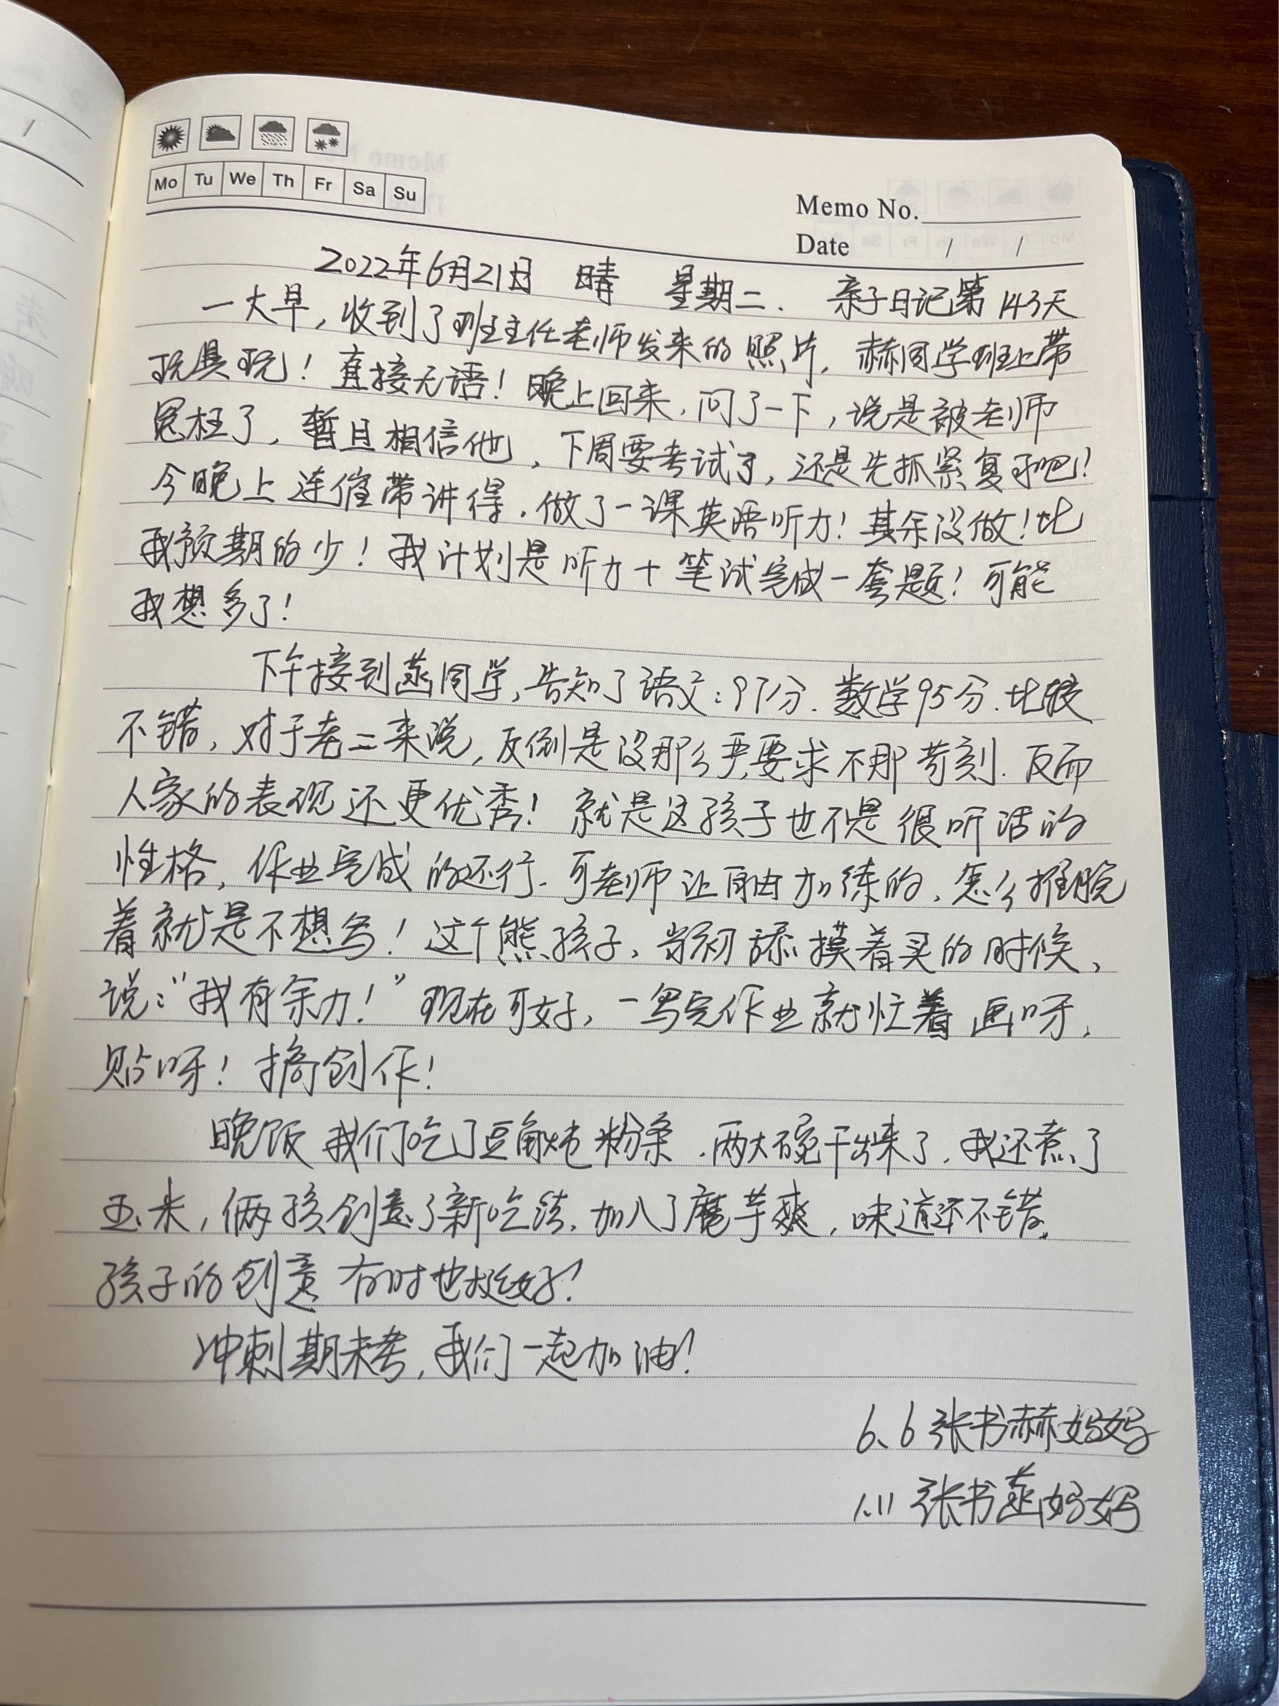 Mo Tu We Th Fr Sa Su
Memo No.
Date / /
2022年6月21日 晴 星期二. 亲子日记第143天
一大早,收到了班主任老师发来的照片,赫同学班上带
玩具玩!直接无语!晚上回来,问了一下,说是被老师
冤枉了,暂且相信他,下周要考试了,还是先抓紧复习吧!
今晚上连催带讲得,做了一课英语听力!其余没做!比
我预期的少!我计划是听力+笔试完成一套题!可能
我想多了!
下午接到菡同学,告知了语文:97分.数学95分.比较
不错,对于老二来说,反倒是没那么严,要求不那苛刻.反而
人家的表现还更优秀!就是这孩子也不是很听话的
性格,作业完成的还行.可老师让自由加练的,怎么推脱
着就是不想写!这个熊孩子,当初舔摸着买的时候,
说:“我有余力!”现在可好,一写完作业就忙着画呀,
贴呀!搞创作!
晚饭我们吃了豆角炖粉条.两大碗干出来了,我还煮了
玉米,俩孩创意了新吃法,加入了魔芋爽,味道还不错,
孩子的创意有时也挺好!
冲刺期末考,我们一起加油!
6.6张书赫妈妈
1.11张书菡妈妈